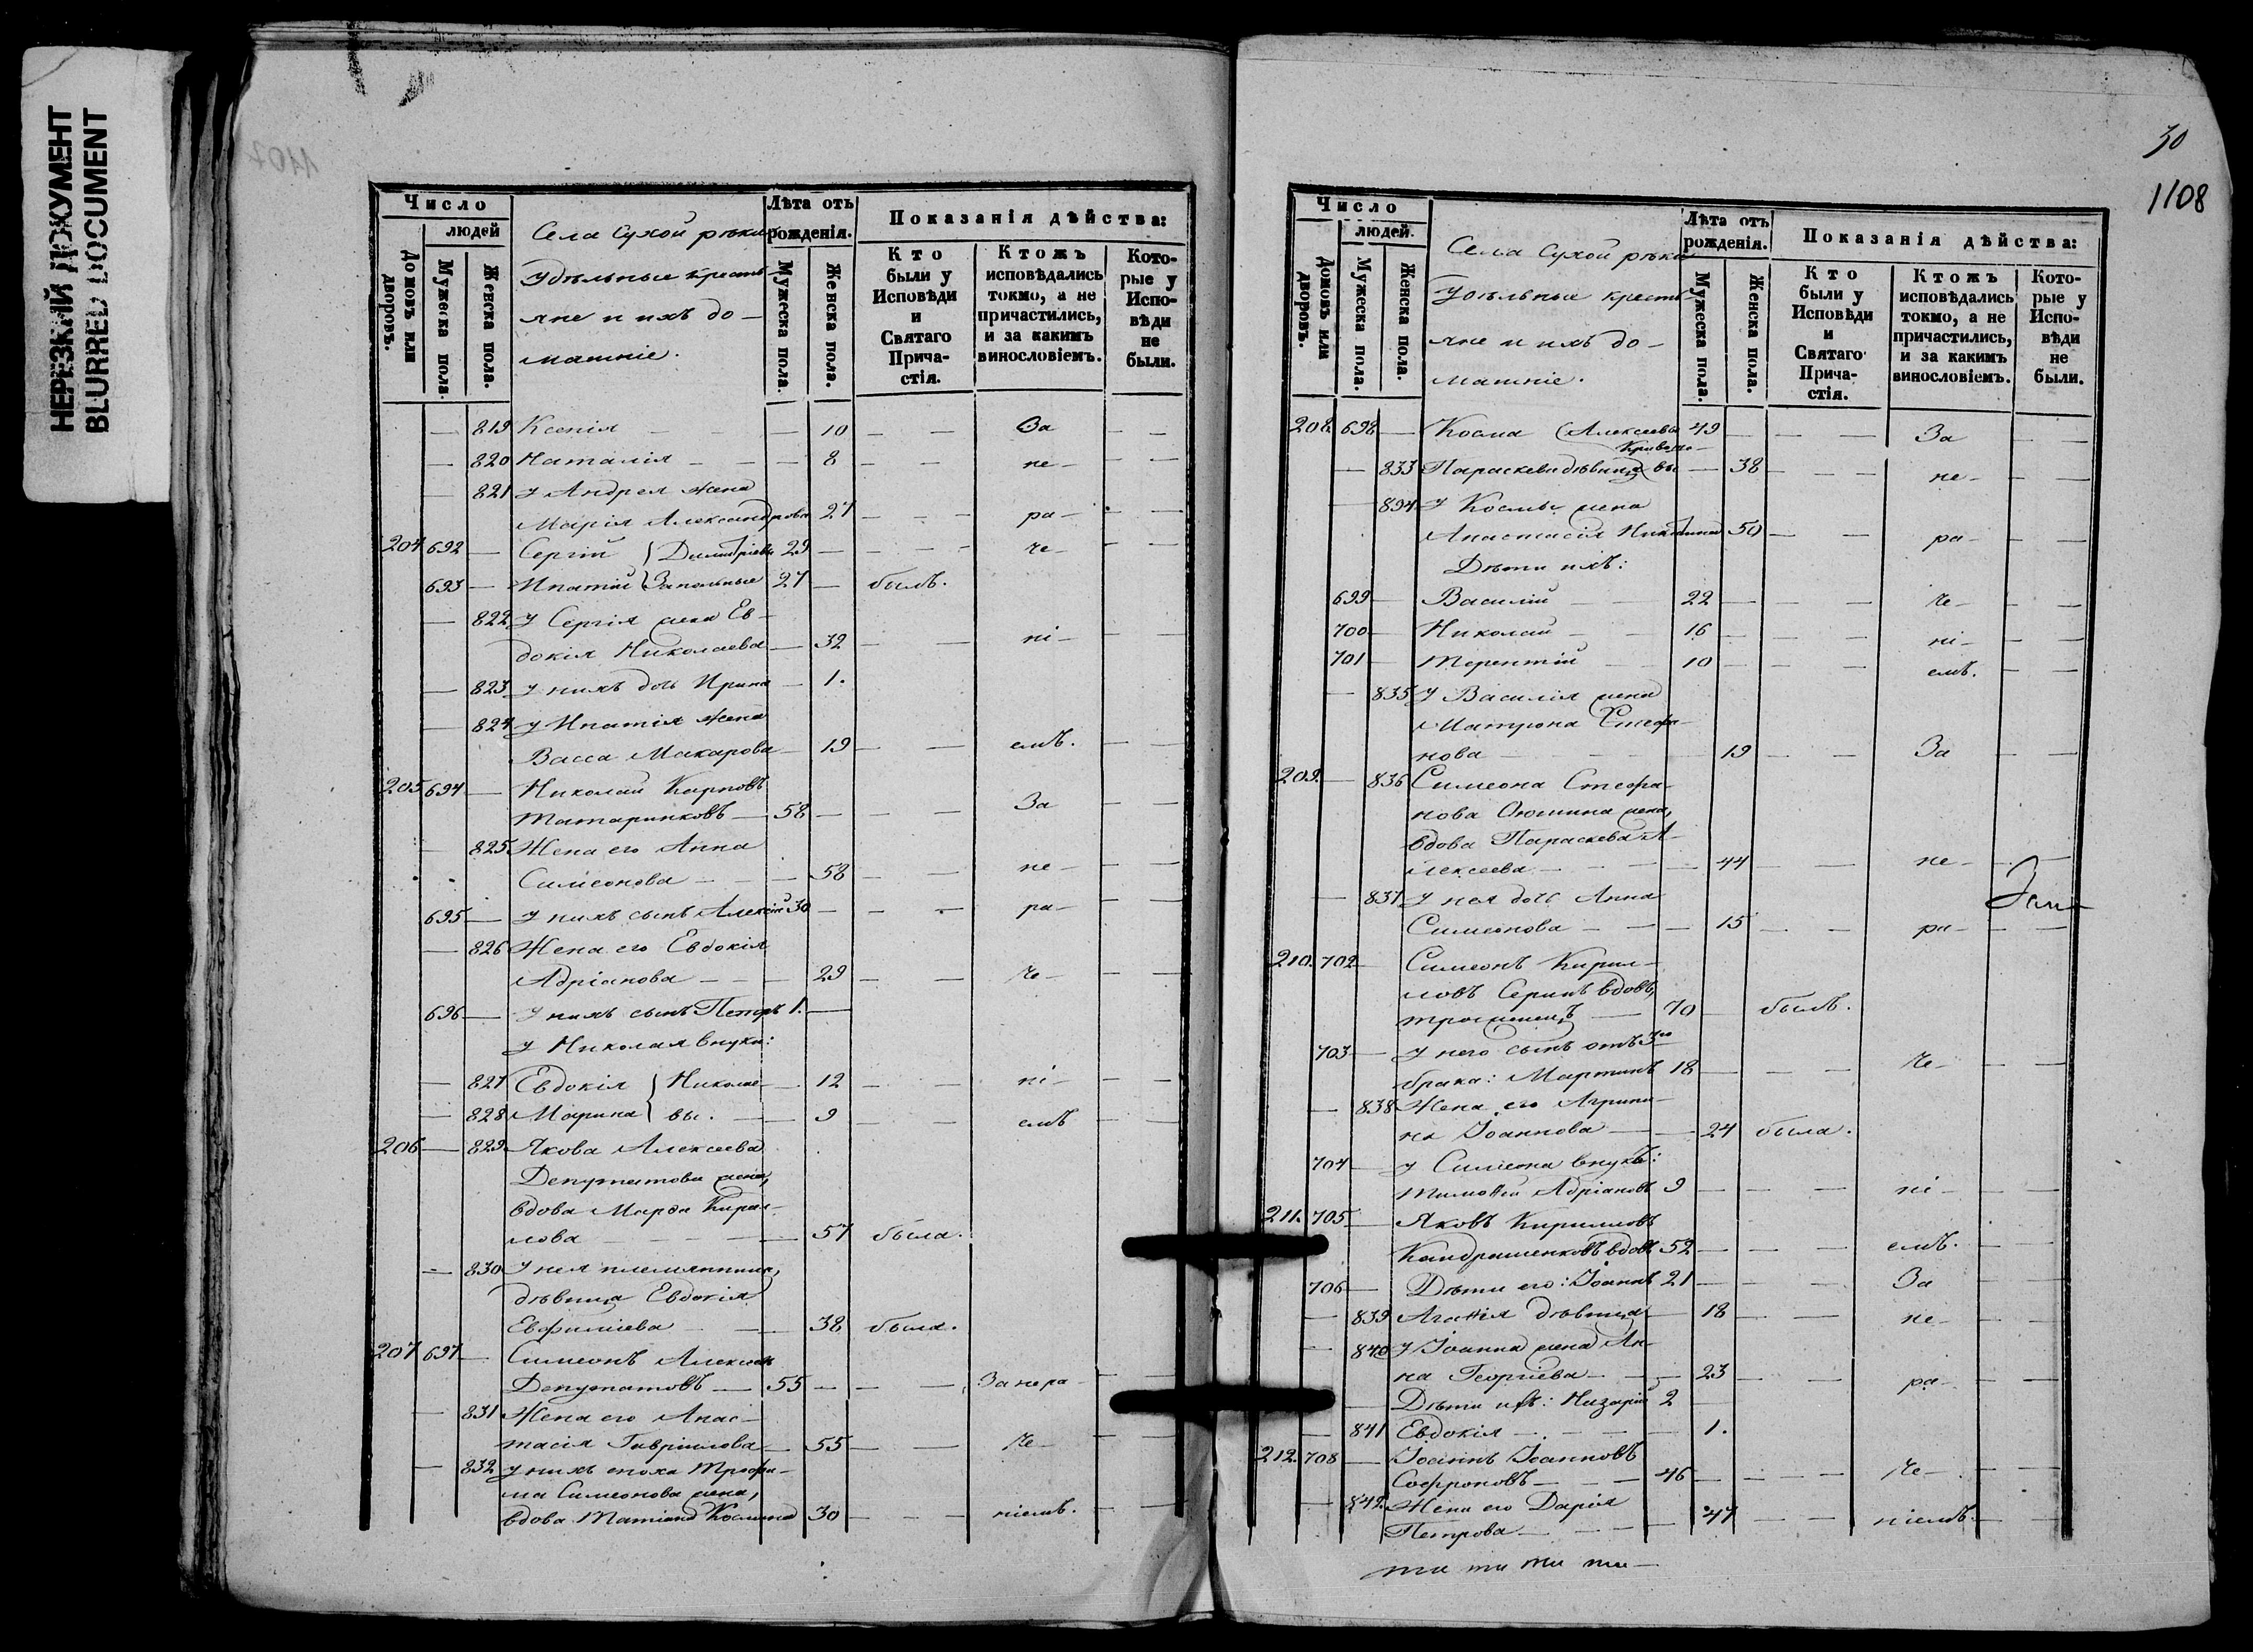 НЕРЕЗКИЙ ДОКУМЕНТ
BLURRED DOCUMENT
1107
Число
людей
Домовъ или дворовъ.
Мужеска пола.
Женска пола.
Села Сухой рѣки
Удѣльные кресть-
яне и ихъ до-
машніе.
Лѣта отъ рожденія.
Мужеска пола.
Женска пола.
Показанія дѣйства:
Кто были у Исповѣди и Святаго Прича-стія.
Ктожъ исповѣдались токмо, а не причастились, и за какимъ винословіемъ.
Кото-рые у Испо-вѣди не были.
— 819 Ксенія — — — 10 — — За — —
— 820 Наталія — — — 8 — — не- — —
— 821 У Андрея жена
Марія Александрова 27 — — — ра- — —
204 692 — Сергій } Димитріевы 29 — — — — че- — —
693 — Ипатій } Запольные 27 — былъ.
— 822 У Сергія жена Ев-
докія Николаева — 32 — — ні- — —
— 823 У нихъ дочь Ирина — 1.
— 824 У Ипатія жена
Васса Макарова — 19 — — емъ. — —
205 694 — Николай Карповъ
Татаринковъ — 58 — — — — За — —
— 825 Жена его Анна
Симеонова — — — 58 — — не- — —
695 — У нихъ сынъ Алексій 30 — — — ра- — —
— 826 Жена его Евдокія
Адріанова — — — 29 — — че- — —
696 — У нихъ сынъ Петръ 1. —
У Николая внуки:
— 827 Евдокія } Николае- — 12 — — ні- — —
— 828 Марина } вы. — 9 — — емъ — —
206 — 829 Якова Алексеева
Депутатова жена,
вдова Марѳа Кирил-
лова — — — — 57 была.
— 830 У нея племянница,
дѣвица Евдокія
Евфиміева — — 38 была.
207 697 — Симеонъ Алексѣевъ
Депутатовъ — 55 — — — За нера- — —
— 831 Жена его Анас-
тасія Гавріилова — 55 — — че- — —
— 832 У нихъ сноха Трофи-
ма Симеонова жена,
вдова Татіана Космина 30 — — — ніемъ. — —
30
1108
Число
людей.
Домовъ или дворовъ.
Мужеска пола.
Женска пола.
Села Сухой рѣки
Удѣльные кресть-
яне и ихъ до-
машніе.
Лѣта отъ рожденія.
Мужеска пола.
Женска пола.
Показанія дѣйства:
Кто были у Исповѣди и Святаго Прича-стія.
Ктожъ исповѣдались токмо, а не причастились, и за какимъ винословіемъ.
Кото-рые у Испо-вѣди не были.
208. 698 — Косма (Алексеевы 49 — — — За — —
— 833 Параскева дѣвица — 38 — — не- — —
— 834 У Космы жена
Анастасія Никитина 50 — — ра- — —
Дѣти ихъ:
699 — Василій — — 22 — — — че- — —
700 — Николай — — 16 — — — ні- — —
701 — Терентій — — 10 — — — емъ. — —
— 835 У Василія жена
Матрона Стефа-
нова — — — 19 — — За — —
209. — 836 Симеона Стефа-
нова жена,
вдова Параскева А-
лексеева — — — 44 — — не- — —
— 837 У нея дочь Анна
Симеонова — — — 15 — — ра- — —
210. 702 — Симеонъ Кирил-
ловъ Серинъ вдовъ,
троеженецъ — 70 — былъ.
703 — У него сынъ отъ 3го
брака: Мартинъ 18 — — — че- — —
— 838 Жена его Агрипи-
на Іоаннова — — 24 была.
704 — У Симеона внукъ:
Тимоѳей Адріановъ 9 — — — ні- — —
211. 705 — Яковъ Кирилловъ
Кандрашенковъ вдовъ 52 — — — емъ. — —
706 — Дѣти его: Іоаннъ 21 — — — За
— 839 Агаѳія дѣвица — 18 — — не- — —
— 840 У Іоанна жена Ан-
на Георгіева — — 23 — — ра- — —
— Дѣти ихъ: Назарій 2 —
— 841 Евдокія — — — — 1.
212. 708 — Іоаннъ Іоанновъ
Софроновъ — — 46 — — — че- — —
— 842 Жена его Дарія
Петрова — — — 47 — — ніемъ. — —